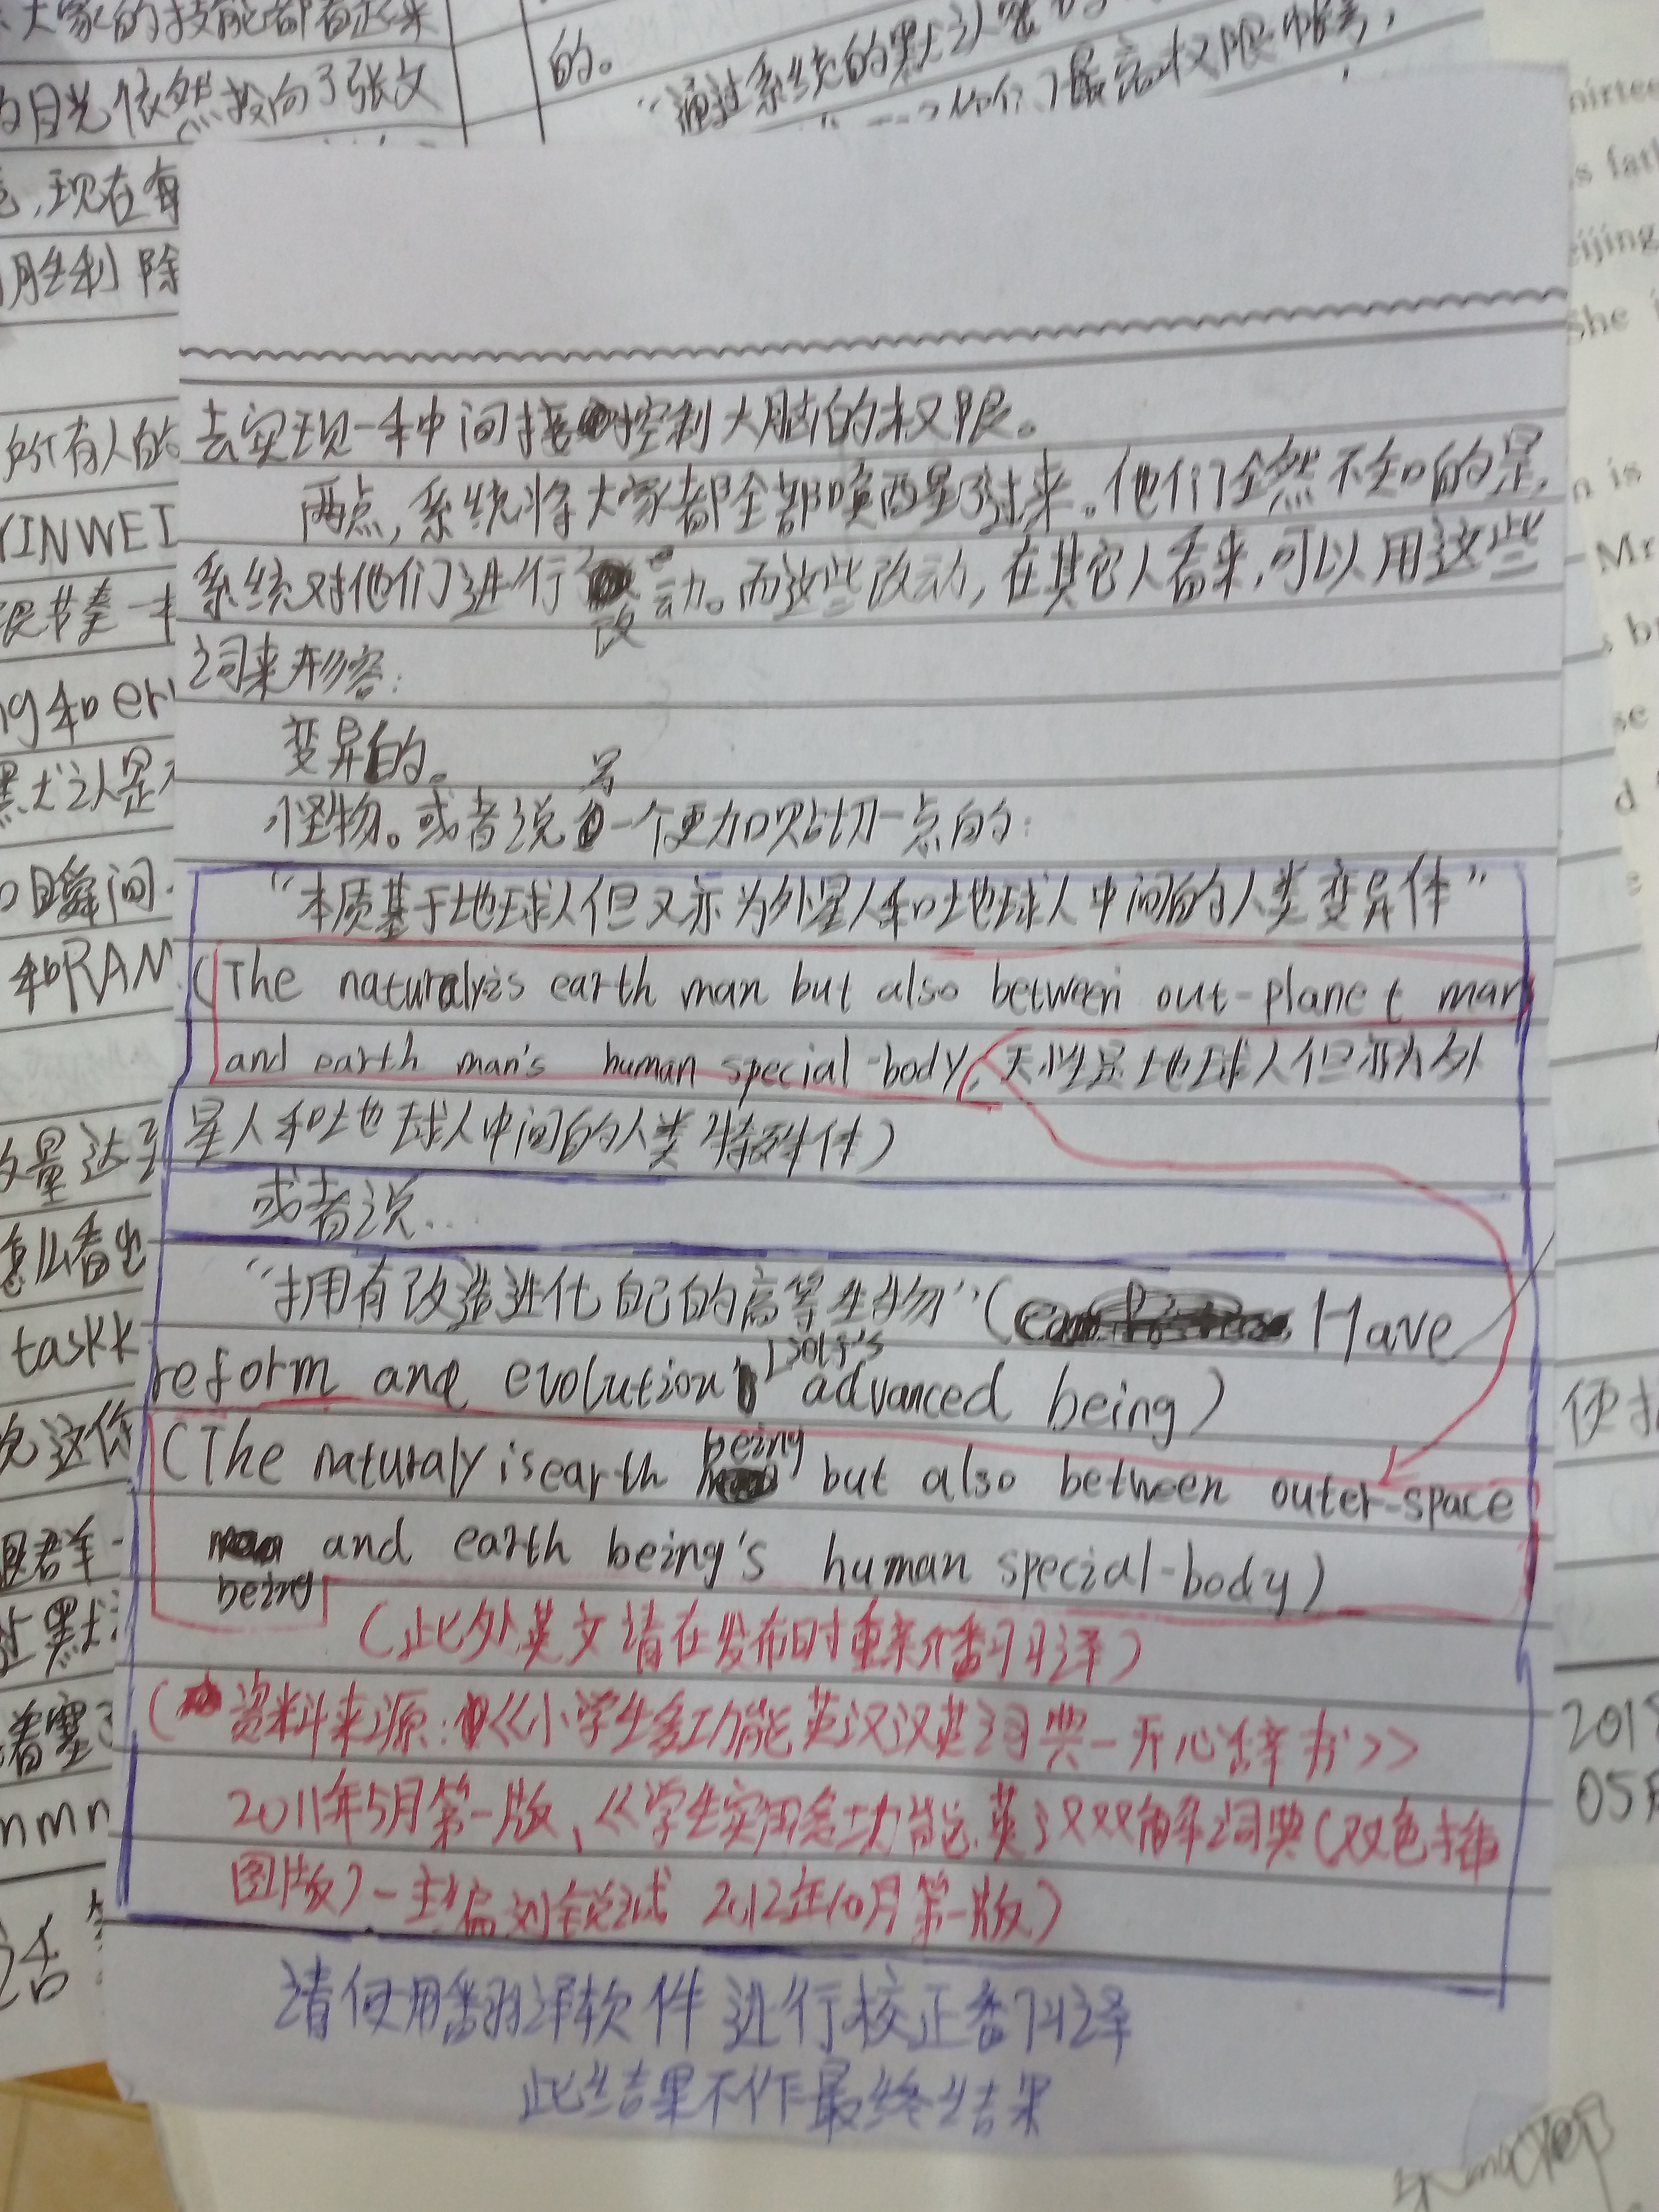 大家的技能都看起来
的目光依然投向了张文
的。
"通过系统的默认
最高权限帐号，
现在有
胜利 除
所有人的
YINWEI
很节奏一
ng和er
默认是
瞬间
和RAM
数量达到
怎么看出
taskk
nirtee
s fath
eijing
She i
n is
Mr
s br
se
d
便
2018
05
去实现一种间接控制大脑的权限。
两点，系统将大家都全部唤醒了过来。他们全然不知的是，
系统对他们进行了改动。而这些改动，在其它人看来，可以用这些
词来形容：
变异的。
怪物。或者说另一个更加贴切一点的：
"本质基于地球人但又亦为外星人和地球人中间的人类变异体"
(The naturalyis earth man but also between out-planet man
and earth man's human special-body，天性是地球人但亦为外
星人和地球人中间的人类特殊体)
或者说...
"拥有改造进化自己的高等生物"( Have
reform and evolution self's advanced being)
(The naturaly is earth being but also between outer-space
being and earth being's human special-body)
(此处英文请在发布时重新翻译)
(资料来源：《小学生多功能英汉汉英词典-开心辞书》
2011年5月第一版、《学生实用多功能英汉双解词典(双色插
图版)-主编刘锐诚 2012年10月第一版)
请使用翻译软件进行校正翻译
此结果不作最终结果